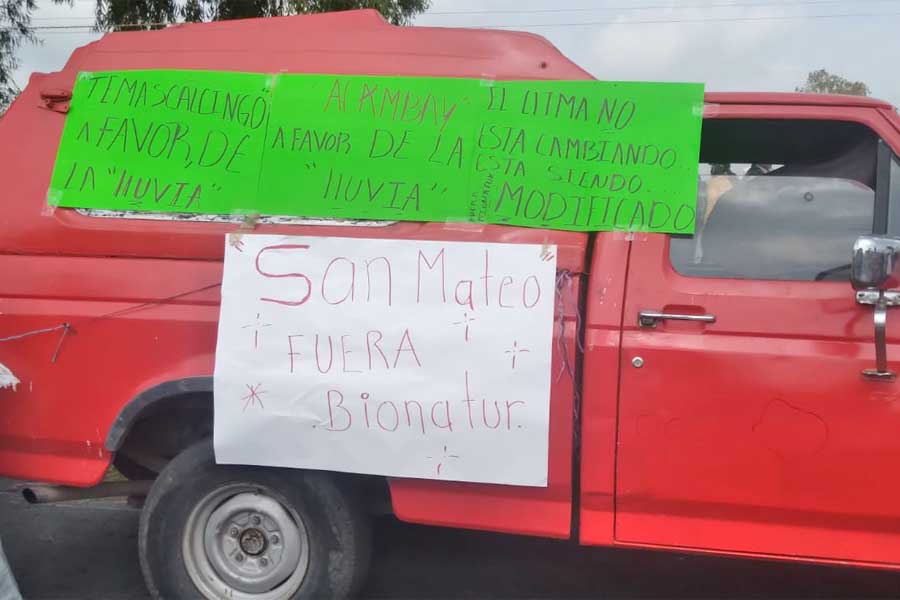 "TEMASCALCINGO"
A FAVOR, DE
LA "llUVIA"
"ACAMBAY"
A FAVOR DE LA
"llUVIA"
El ClIMA NO
ESTA CAMBIANDO..
ESTA SIENDO...
MODIFICADO
San Mateo
FUERA
Bionatur.